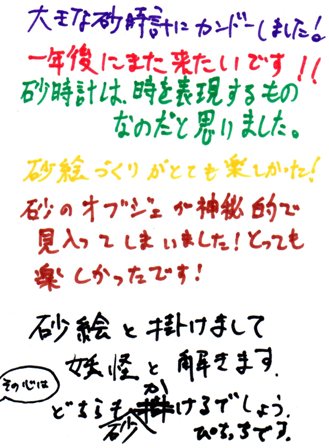 大王な砂時計にカンドーしました!
一年後にまた来たいです!!
砂時計は、時を表現するもの
なのだと思いました。
砂絵づくりがとても楽しかった!
砂のオブジェが神秘的で
見入ってしまいました!とっても
楽しかったです!
砂絵と掛けまして
妖怪と解きます。
その心は
どちらも砂かけるでしょう。
ぴちちです。